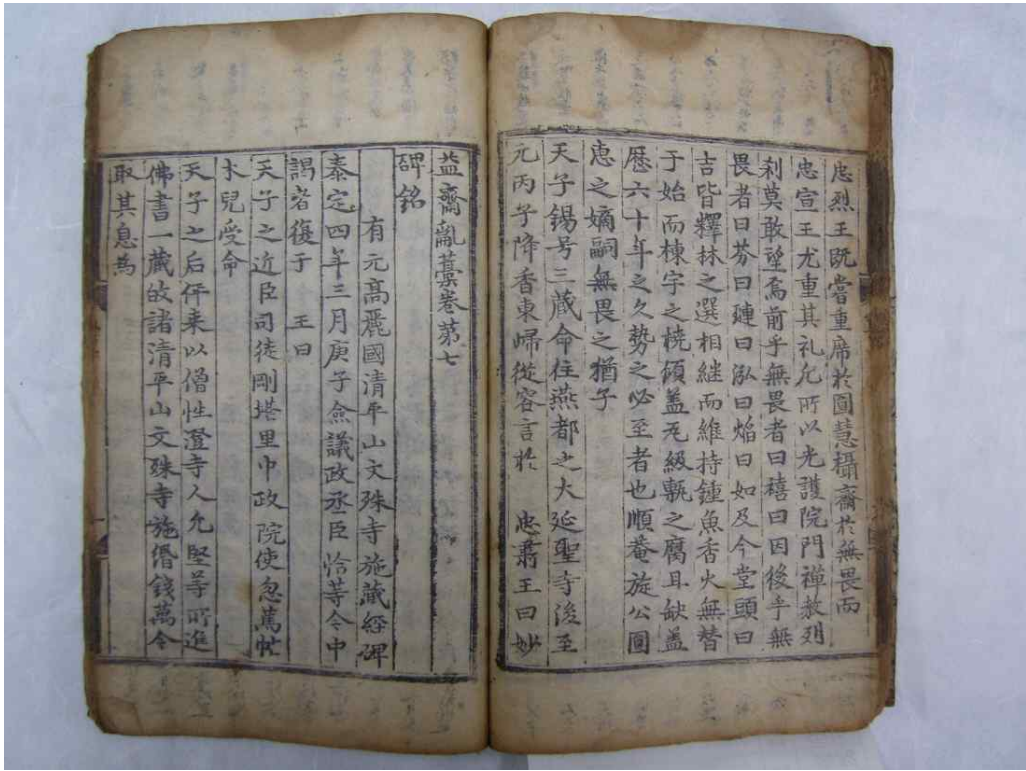 忠烈王既嘗重席於圓慧攝齋於無畏而
忠宣王尤重其礼允所以光護院門禅教列
刹莫敢望焉前乎無畏者曰禧曰因後乎無
畏者曰芬曰璉曰泓曰焰曰如及今堂頭曰
吉皆釋林之選相継而維持鍾魚香火無替
于始而棟宇之撓頎盖瓦級甎之腐且缺盖
歴六十年之久勢之必至者也順菴旋公圓
恵之嫡嗣無畏之猶子
天子錫号三藏命住燕都之大延聖寺後至
元丙子降香東帰從容言於 忠肅王曰妙
益齋亂藁卷第七
碑銘
有元高麗國清平山文殊寺施藏經碑
泰定四年三月庚子僉議政丞臣恰等令中
謁者復于 王曰
天子之近臣司徒剛塔里中政院使忽篤帖
木兒受命
天子之后伻来以僧性澄寺人允堅等所進
佛書一藏敀諸清平山文殊寺施緡錢萬令
取其息為